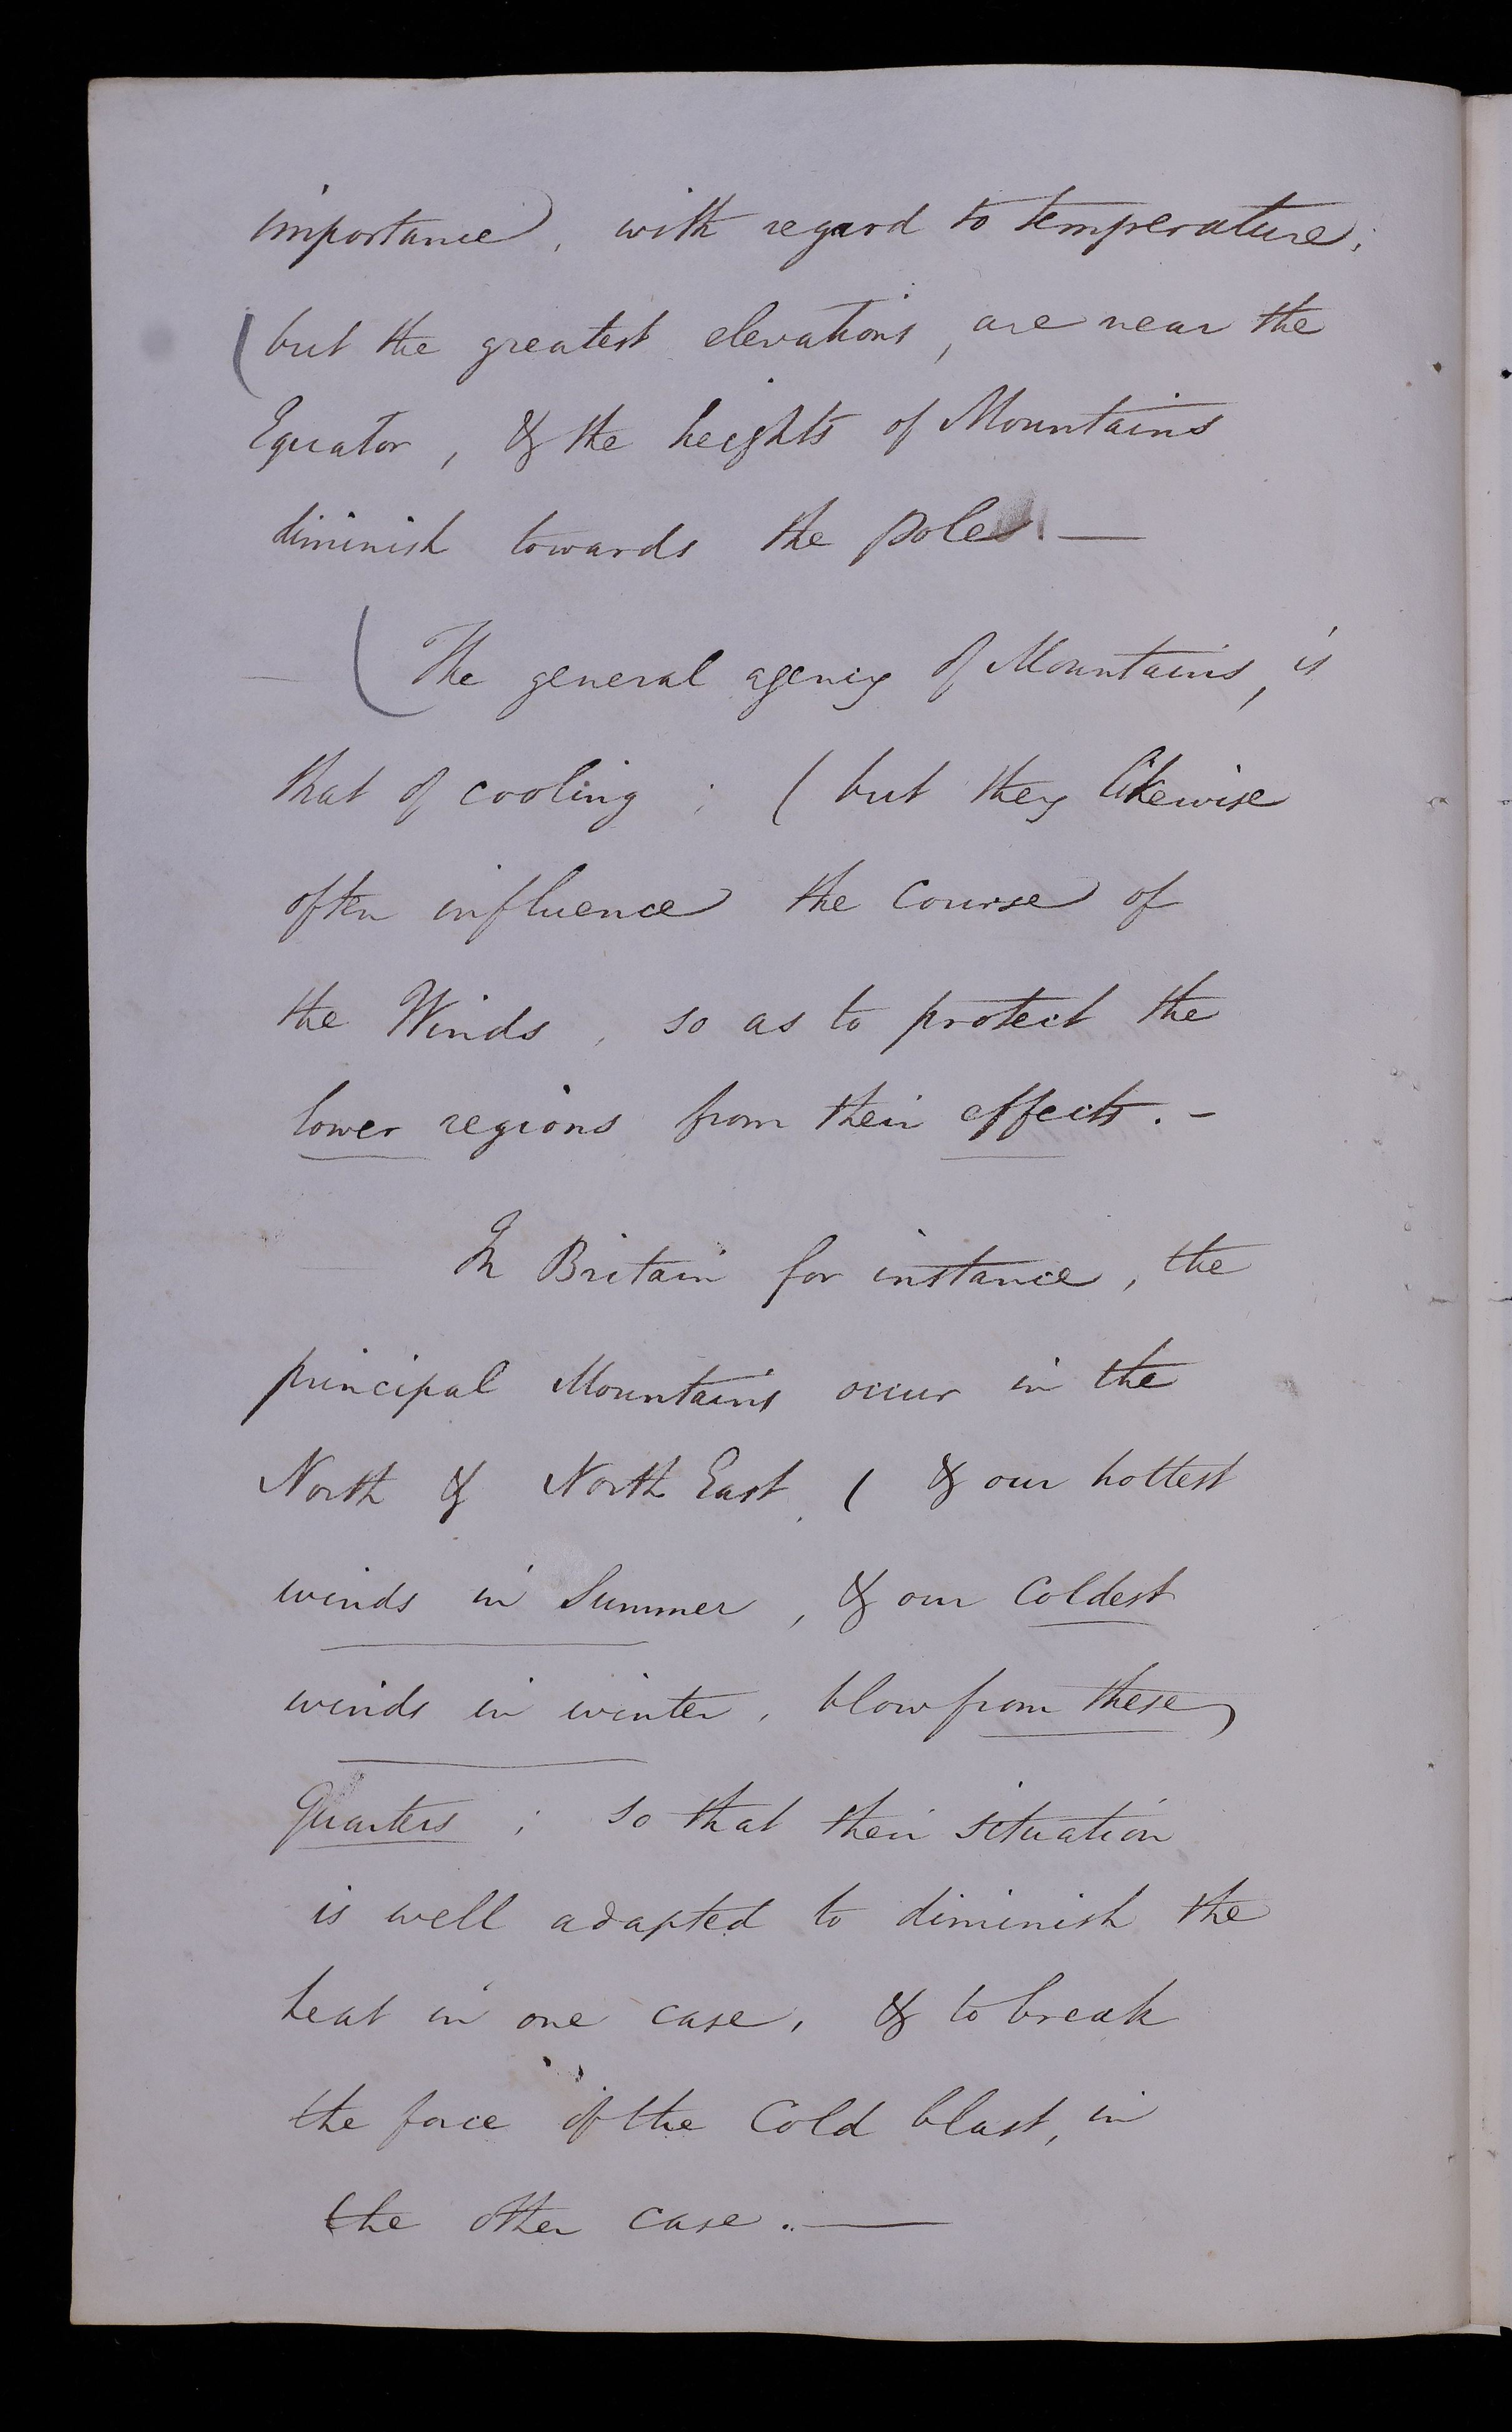 importance, with regard to temperature;
(but the greatest elevations, are near the
Equator, & the heights of Mountains
diminish towards the poles. —
(The general agency of Mountains, is
that of cooling ; (but they likewise
often influence the course of
the Winds, so as to protect the
lower regions from their effects. -
In Britain for instance, the
principal Mountains occur in the
North & North East, ( & our hottest
winds in Summer, & our Coldest
winds in winter, blow from these
Quarters ; so that their situation
is well adapted to diminish the
heat in one case, & to break
the force of the Cold blast, in
the other case. —